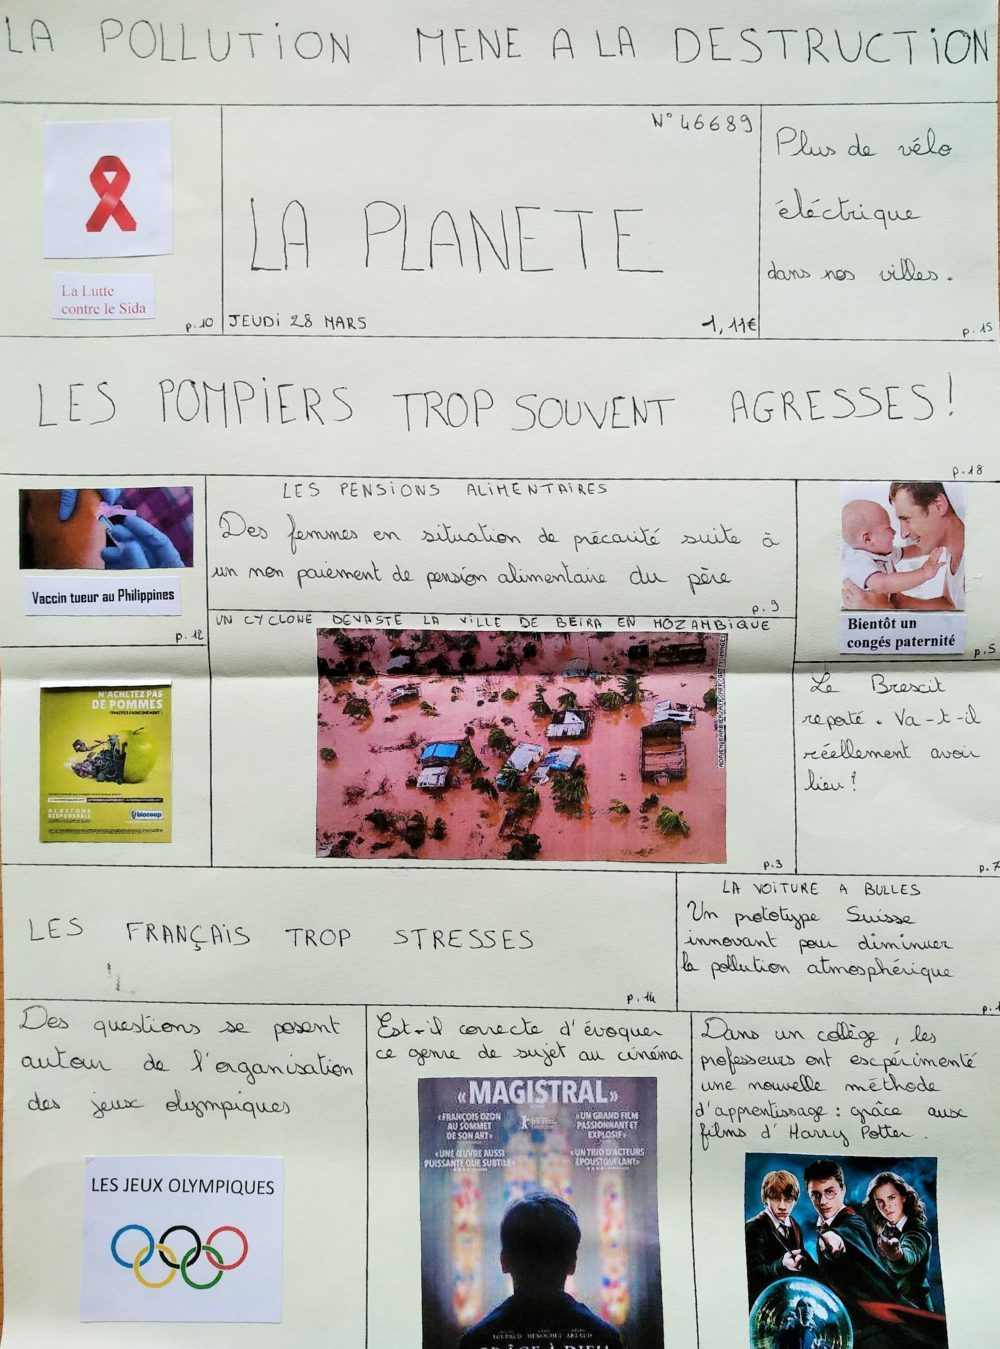 LA POLLUTION MENE A LA DESTRUCTION
La Lutte
contre le Sida
p.10
N° 46689
LA PLANETE
JEUDI 28 MARS
1,11€
Plus de vélo
éléctrique
dans nos villes.
p.15
LES POMPIERS TROP SOUVENT AGRESSES!
p.18
Vaccin tueur au Philippines
p.12
LES PENSIONS ALIMENTAIRES
Des femmes en situation de précarité suite à
un non paiement de pension alimentaire du père
p.9
Bientôt un
congés paternité
p.5
N'ACHETEZ PAS
DE POMMES
ACHETONS
RESPONSABLE
biocoop
UN CYCLONE DEVASTE LA VILLE DE BEIRA EN MOZAMBIQUE
p.3
Le Brescit
reporté. Va-t-il
réellement avoir
lieu?
p.7
LES FRANÇAIS TROP STRESSES
p.14
LA VOITURE A BULLES
Un prototype Suisse
innovant pour diminuer
la pollution atmosphérique
Des questions se posent
autour de l'organisation
des jeux olympiques
LES JEUX OLYMPIQUES
Est-il correcte d'évoquer
ce genre de sujet au cinéma
«MAGISTRAL»
«FRANÇOIS OZON
AU SOMMET
DE SON ART»
«UNE ŒUVRE AUSSI
PUISSANTE QUE SUBTILE»
«UN GRAND FILM
PASSIONNANT ET
EXPLOSIF»
«UN TRIO D'ACTEURS
EPOUSTOUFLANT»
GRÂCE À DIEU
Dans un collège, les
professeurs ont escpérimenté
une nouvelle méthode
d'apprentissage: grâce aux
films d'Harry Potter.